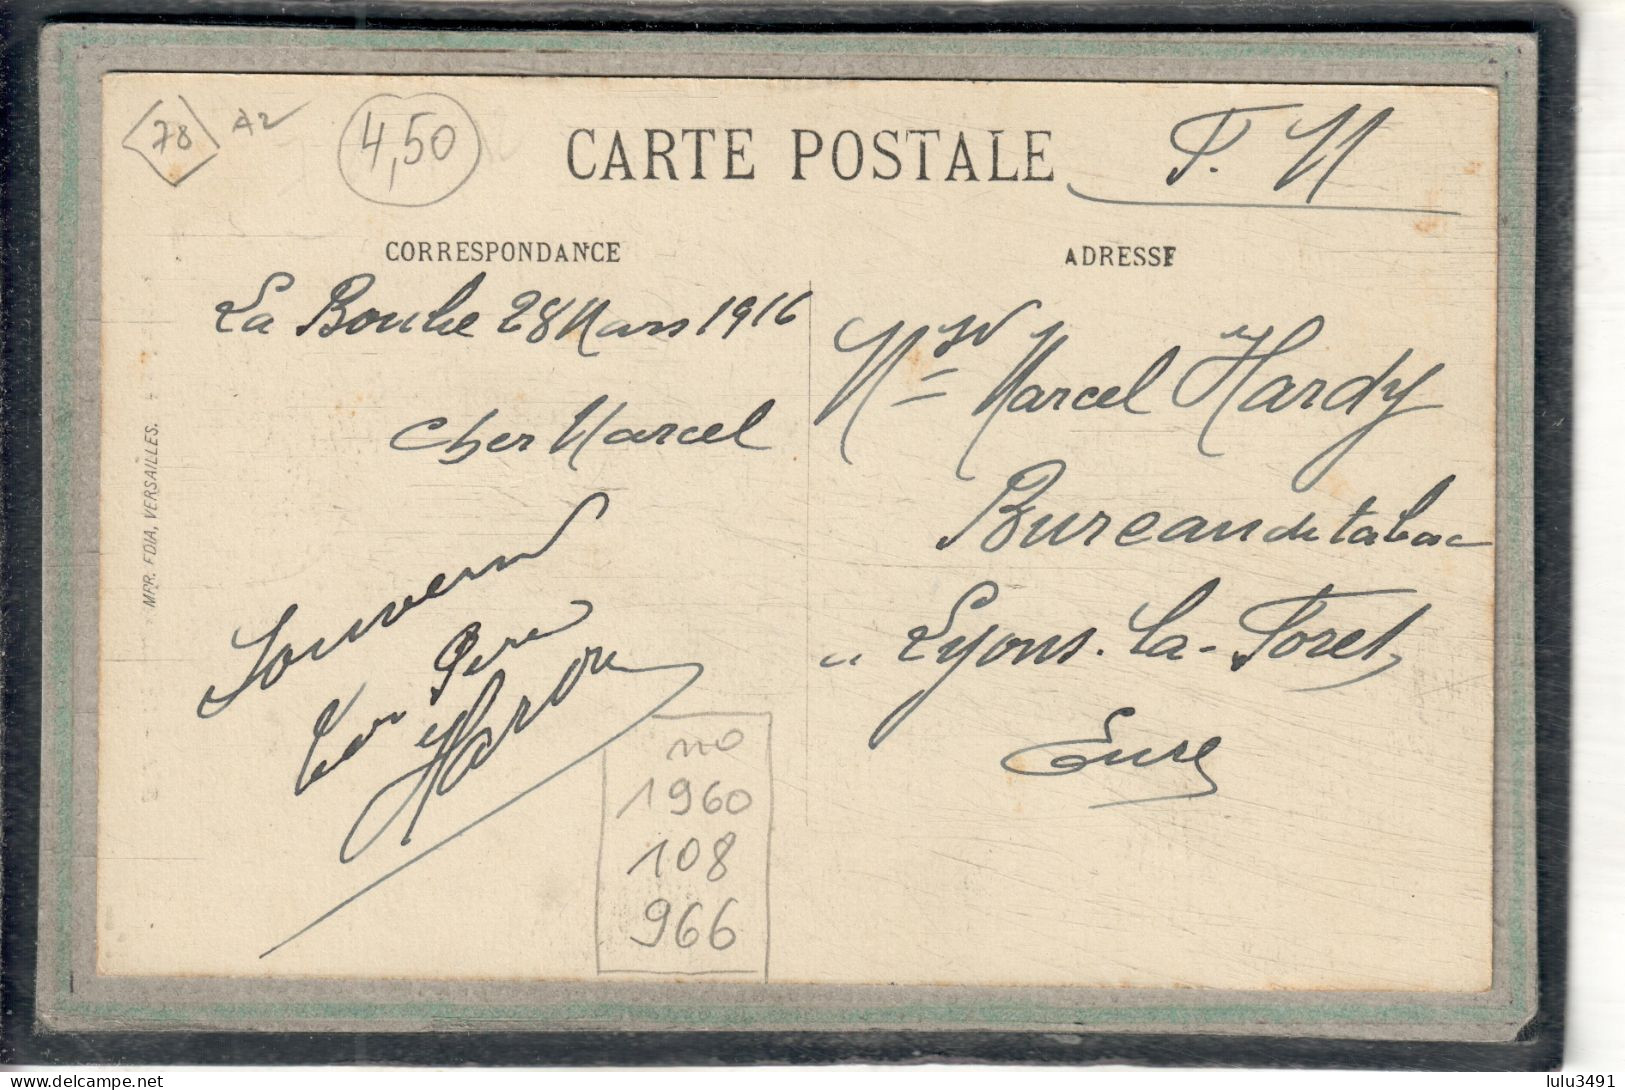 78 A2
4,50
CARTE POSTALE
F. M
CORRESPONDANCE
ADRESSE
La 28 Mars 1916
Cher Marcel
Souvenir
ton Père
Hardy
MPR. EDIA, VERSAILLES.
Mr Marcel Hardy
Bureau de tabac
" Lyons-la-Foret
Eure
no
1960
108
966
lulu3491